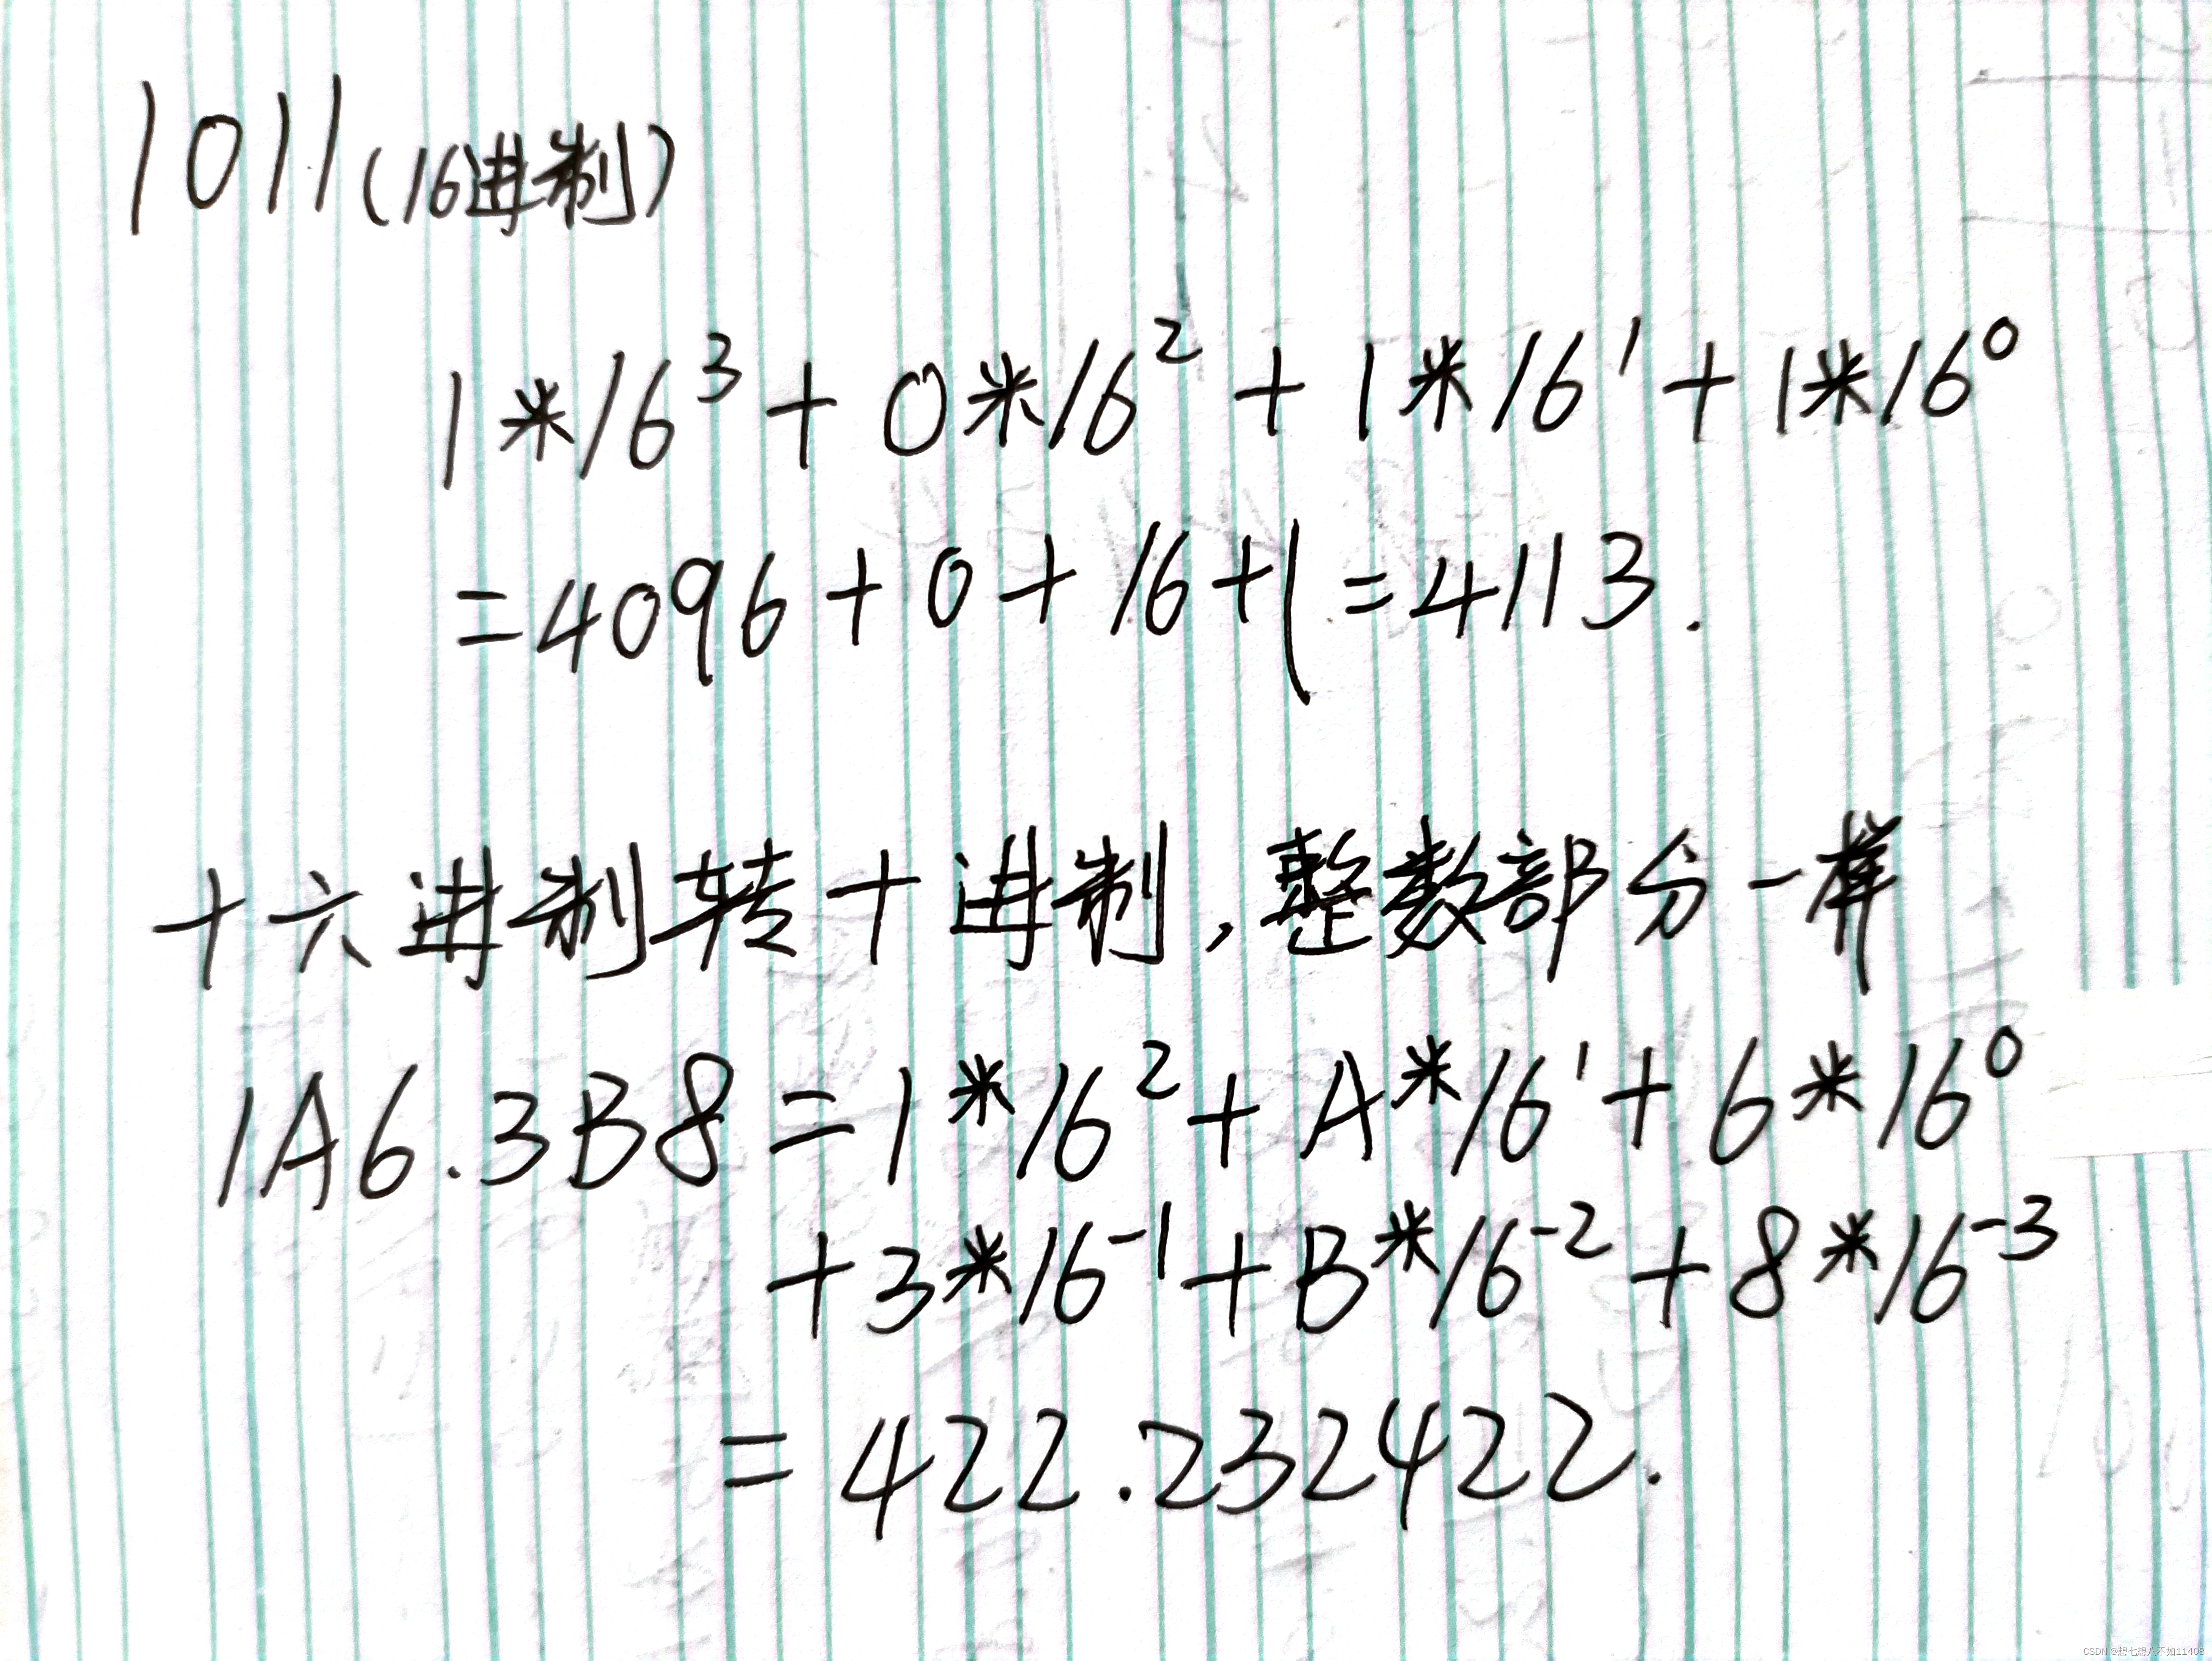 1011(16进制)
1*16³+0*16²+1*16¹+1*16⁰
=4096+0+16+1=4113.
十六进制转十进制,整数部分一样
1A6.3B8=1*16²+A*16¹+6*16⁰
+3*16⁻¹+B*16⁻²+8*16⁻³
=422.232422.
CSDN @想七想八不如11408